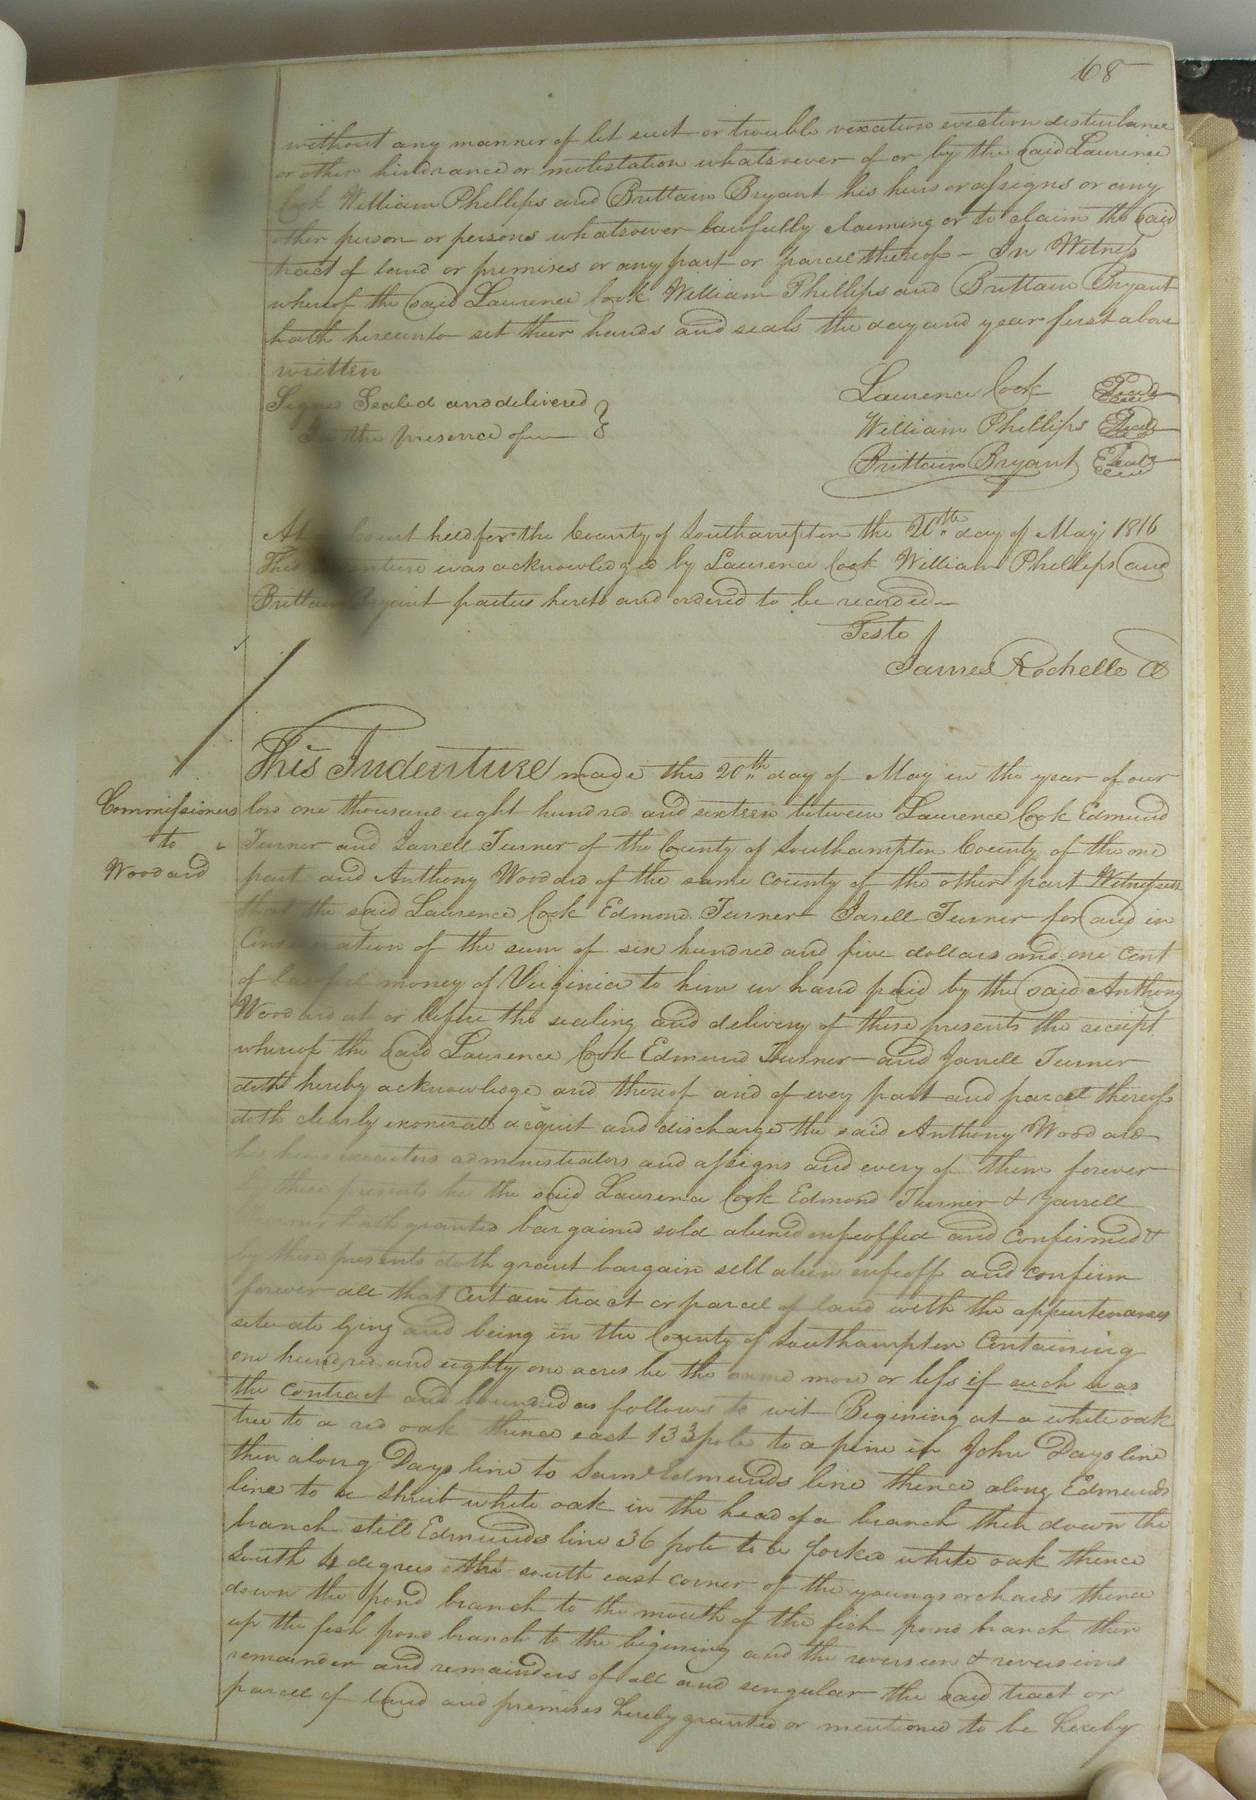 68
without any manner of let suit or trouble vexation eviction disturbance
or other hinderance or molestation whatsoever of or by the said Laurence
Cook William Phillips and Brittain Bryant his heirs or assigns or any
other person or persons whatsoever lawfully claiming or to claim the said
tract of land or premises or any part or parcel thereof - In Witness
whereof the said Laurence Cook William Phillips and Brittain Bryant
hath hereunto set their hands and seals the day and year first above
written
Signed Sealed and delivered
In the presence of
Laurence Cook Seal
William Phillips Seal
Brittain Bryant Seal
At a Court held for the County of Southampton the 20th day of May 1816
This Indenture was acknowledged by Laurence Cook William Phillips and
Brittain Bryant parties hereto and ordered to be recorded
Teste
James Rochelle Cl
Commissioners
to
Woodard
This Indenture made this 20th day of May in the year of our
lord one thousand eight hundred and sixteen between Laurence Cook Edmund
Turner and Jarrell Turner of the County of Southampton County of the one
part and Anthony Woodard of the same County of the other part Witnesseth
that the said Laurence Cook Edmond Turner Jarell Turner for and in
Consideration of the sum of six hundred and five dollars and one cent
of lawful money of Virginia to him in hand paid by the said Anthony
Woodard at or before the sealing and delivery of these presents the receipt
whereof the said Laurence Cook Edmund Turner and Jarrell Turner
doth hereby acknowledge and thereof and of every part and parcel thereof
doth clearly exonerate acquit and discharge the said Anthony Woodard
his heirs executors administrators and assigns and every of them forever
by these presents he the said Laurence Cook Edmond Turner & Jarrell
Turner hath granted bargained sold aliened enfeoffed and confirmed &
by these presents doth grant bargain sell alien enfeoff and confirm
forever all that certain tract or parcel of land with the appurtenances
situate lying and being in the County of Southampton Containing
one hundred and eighty one acres be the same more or less if such was
the contract and bounded as follows to wit Begining at a white oak
tree to a red oak thence east 133 pole to a pine in John Days line
then along Days line to Saml Edmunds line thence along Edmunds
line to a shrub white oak in the head of a branch then down the
branch still Edmunds line 36 pole to a forked white oak thence
South 4 degrees the south east corner of the youngs orchards thence
down the pond branch to the mouth of the fish pond branch then
up the fish pond branch to the begining and the reversion & reversions
remainder and remainders of all and singular the said tract or
parcel of land and premises hereby granted or mentioned to be hereby